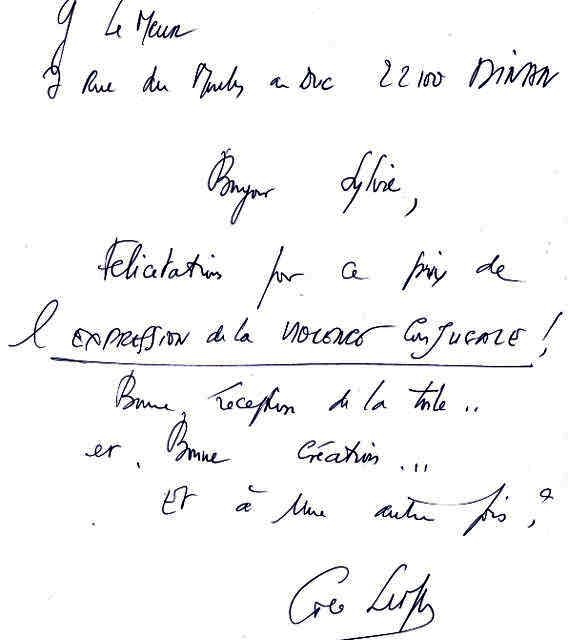 G Le Meur
9 Rue du au Duc 22100 DINAN
Bonjour Sylvie,
Félicitations pour ce prix de
l'EXPRESSION de la VIOLENCE CONJUGALE !
Bonne réception de la toile ..
et Bonne Création ...
Et à une autre fois,